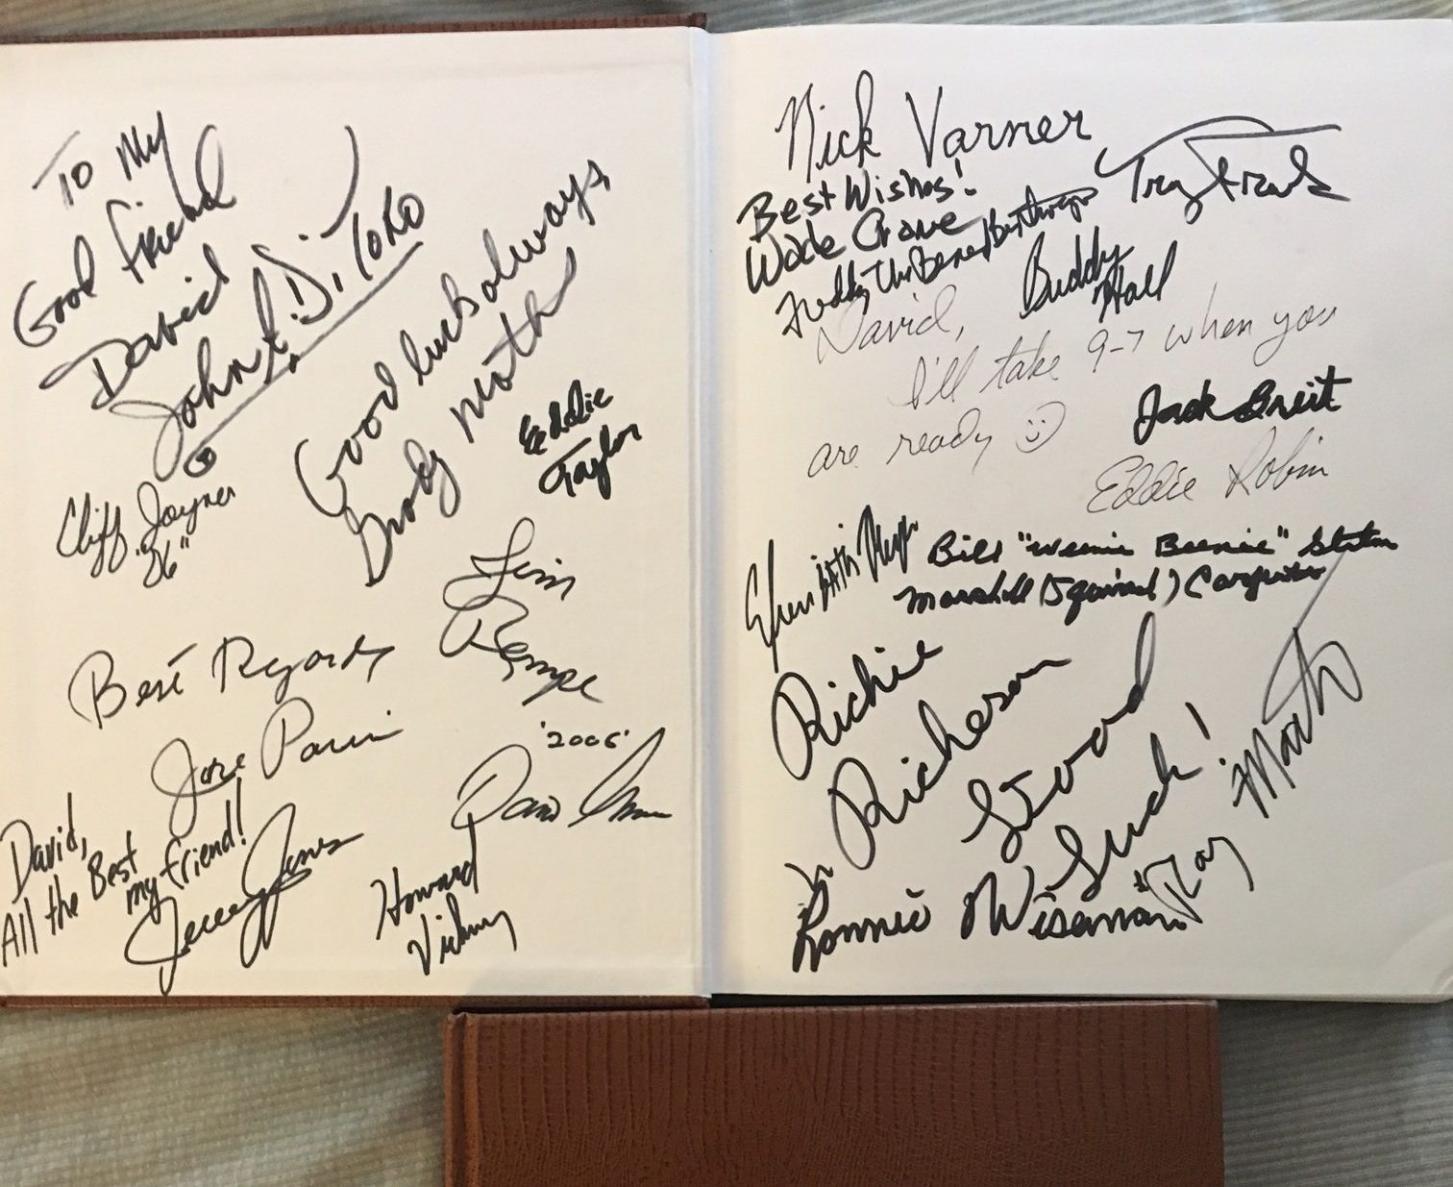 To My
Good friend
David
John F. DiToro
Good luck always
Grady Mathews
Eddie
Taylor
Cliff Joyner
"06"
Jim
Rempe
Best Regards
Jose Parica
'2006'
David,
All the Best
my friend!
Jeremy Jones
Howard
Vickery
Nick Varner
Best Wishes!
Wade Crane
Freddy "The Beard" Bentivegna
Troy Frank
Buddy
Hall
David,
I'll take 9-7 when you
are ready
Jack Breit
Eddie Robin
Efren Bata Reyes
Bill "Weenie Beenie" Staton
Marshall (Squirrel) Carpenter
Richie
Richeson
Good
Luck!
Ray Martin
Lonnie Wiseman